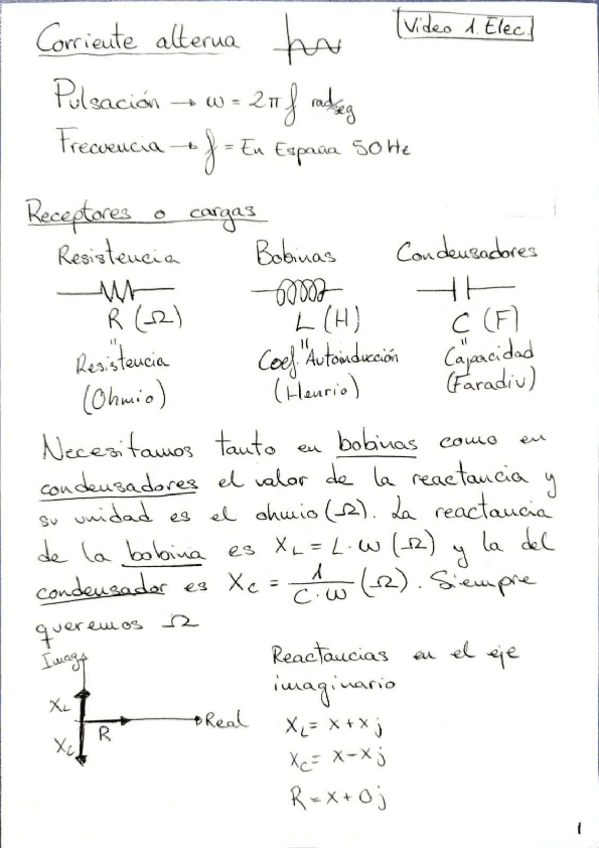 Corriente alterna
Video 1. Elec.
Pulsación → ω = 2π f rad/seg
Frecuencia → f = En España 50 Hz
Receptores o cargas
Resistencia Bobinas Condensadores
R (Ω) L (H) C (F)
" " "
Resistencia Coef. Autoinducción Capacidad
(Ohmio) (Henrio) (Faradiv)
Necesitamos tanto en bobinas como en
condensadores el valor de la reactancia y
su unidad es el ohmio (Ω). La reactancia
de la bobina es XL = L · ω (Ω) y la del
condensador es Xc = 1/(C · ω) (Ω). Siempre
queremos Ω
Imag
XL
R
Real
Xc
Reactancias en el eje
imaginario
XL = x + xj
Xc = x - xj
R = x + 0j
1